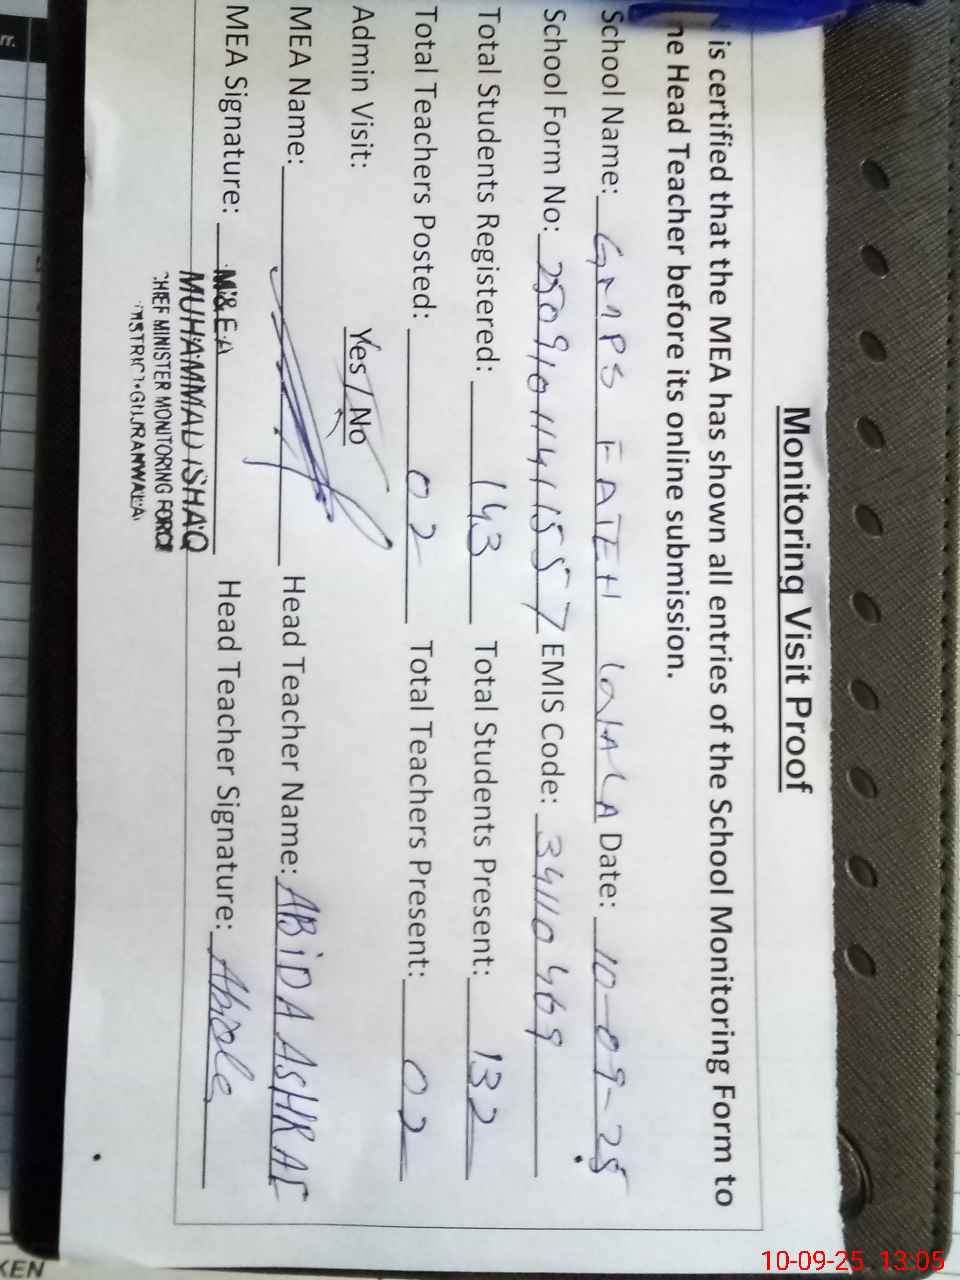 Monitoring Visit Proof
is certified that the MEA has shown all entries of the School Monitoring Form to
he Head Teacher before its online submission.
School Name: GMPS FATEH WALA Date: 10-09-25
School Form No: 2509101141557 EMIS Code: 34110469
Total Students Registered: 143 Total Students Present: 132
Total Teachers Posted: 02 Total Teachers Present: 02
Admin Visit: Yes / No
MEA Name: Head Teacher Name: ABIDA ASHRAF
MEA Signature: Head Teacher Signature: Abida
M&EA
MUHAMMAD ISHAQ
CHIEF MINISTER MONITORING FORCE
DISTRICT GUJRANWALA
KEN
10-09-25 13:05